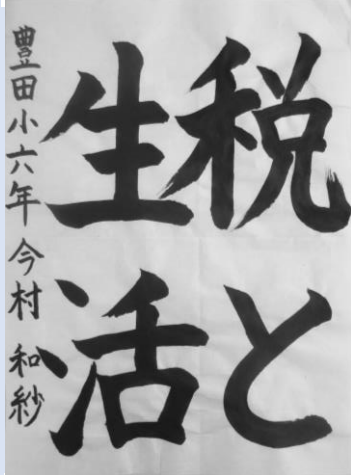 税と
生活
豊田小六年 今村 和紗